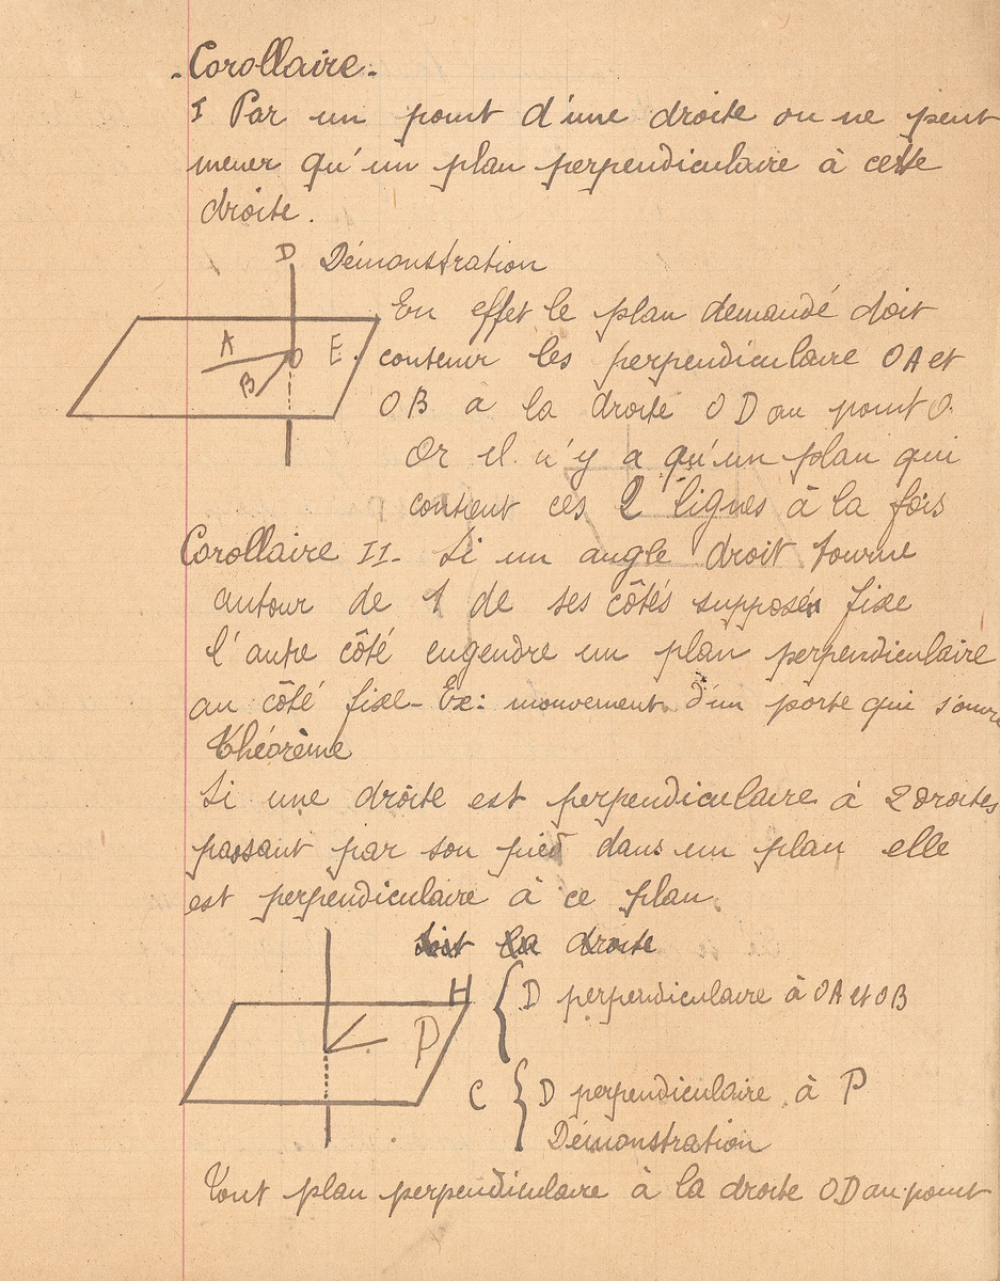 - Corollaire -
I Par un point d'une droite on ne peut
mener qu'un plan perpendiculaire à cette
droite.
D Démonstration
En effet le plan demandé doit
A O E
contenir les perpendiculaire OA et
B
OB à la droite OD au point O.
Or il n'y a qu'un plan qui
contient ces 2 lignes à la fois
Corollaire II - Si un angle droit tourne
autour de 1 de ses côtés supposé fixe
l'autre côté engendre un plan perpendiculaire
au côté fixe - Ex: mouvement d'un porte qui s'ouvre
Théorème
Si une droite est perpendiculaire à 2 droites
passant par son pied dans un plan elle
est perpendiculaire à ce plan.
Soit la droite
H { D perpendiculaire à OA et OB
P
C { D perpendiculaire à P
Démonstration
Tout plan perpendiculaire à la droite OD au point